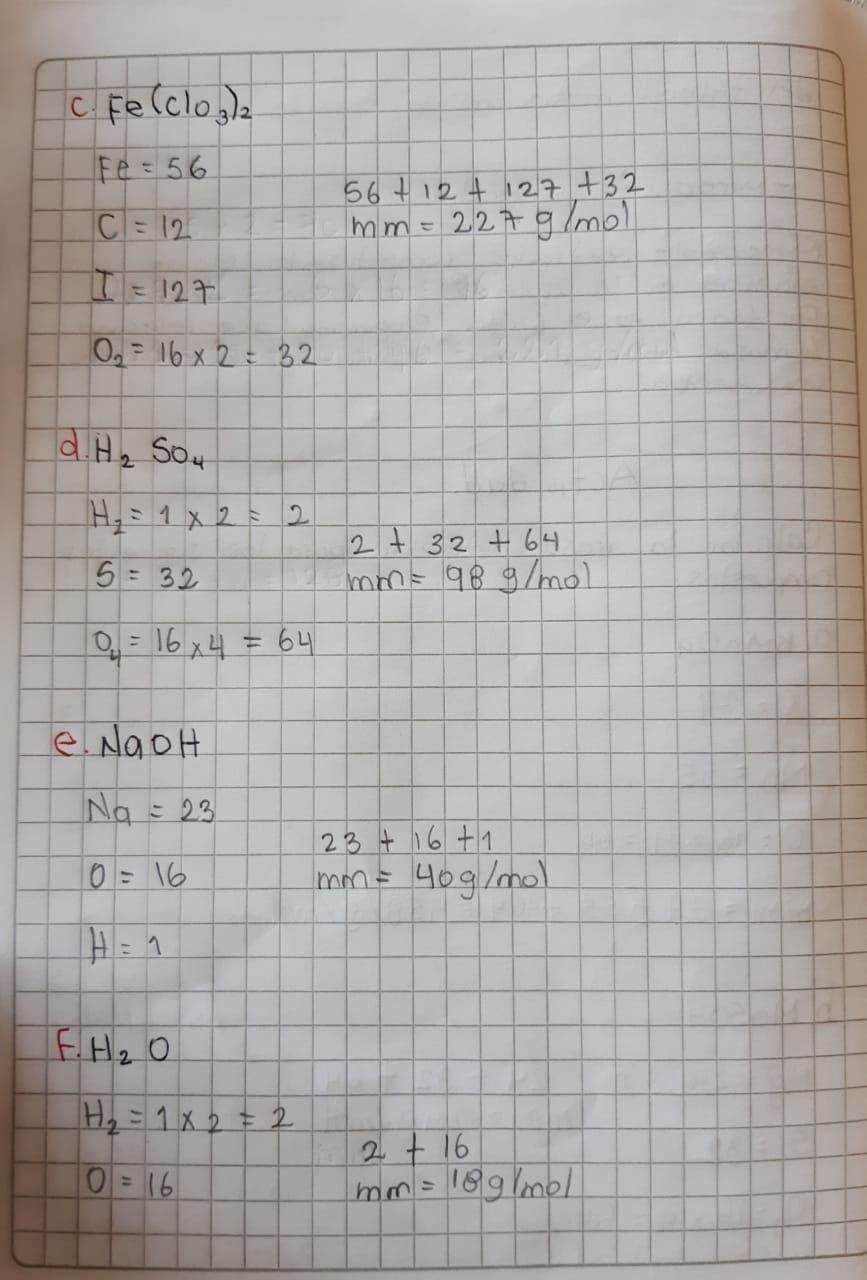 c. Fe(ClO3)2
Fe = 56
56 + 12 + 127 + 32
C = 12
mm = 227 g/mol
I = 127
O2 = 16 x 2 = 32
d. H2 SO4
H2 = 1 x 2 = 2
2 + 32 + 64
S = 32
mm = 98 g/mol
O4 = 16 x 4 = 64
e. NaOH
Na = 23
23 + 16 + 1
O = 16
mm = 40g/mol
H = 1
F. H2 O
H2 = 1 x 2 = 2
2 + 16
O = 16
mm = 18g/mol